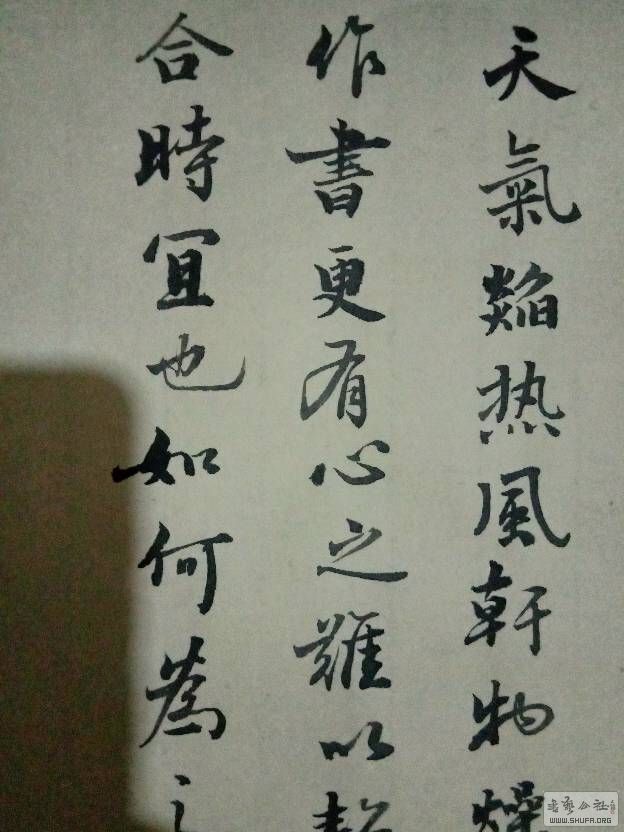 天氣焰热風軒物燥
作書更有心之難以
合時宜也如何為
公社
WWW.SHUFA.ORG